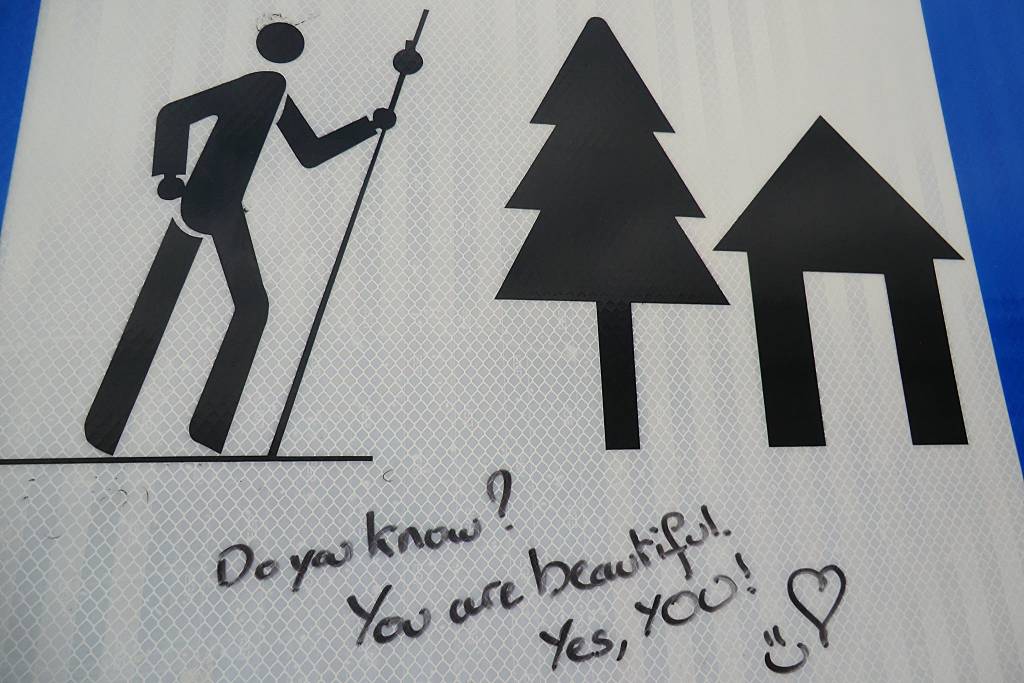 Do you know?
You are beautiful.
Yes, YOU!